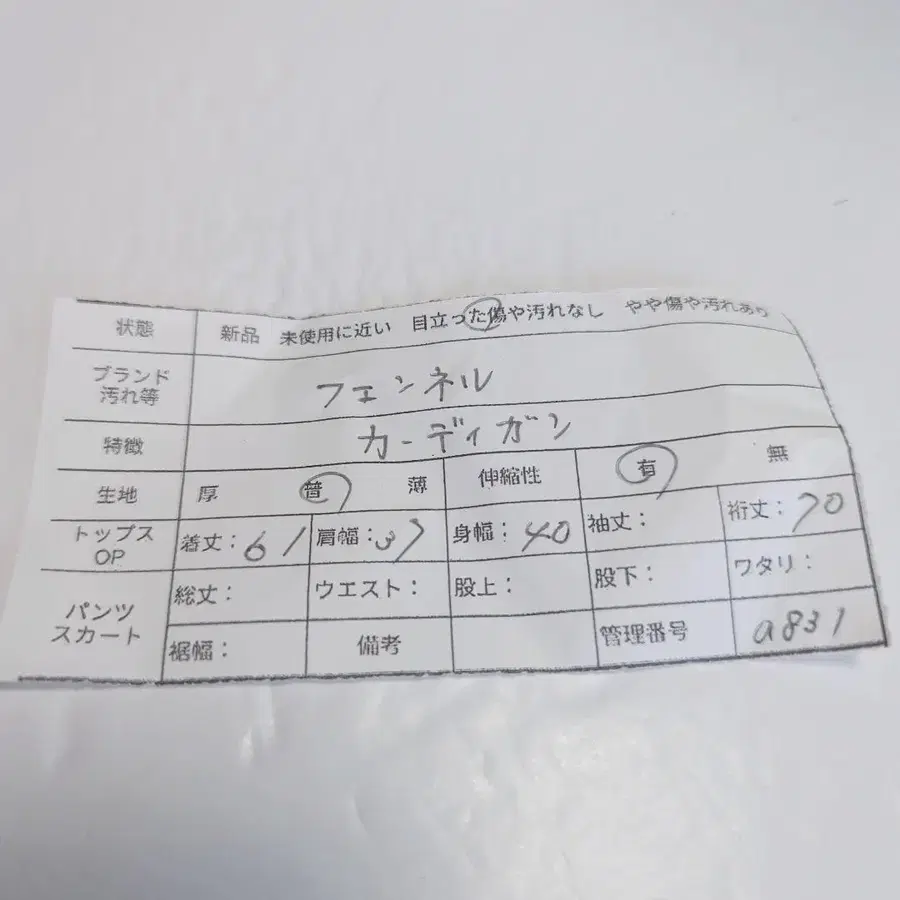 状態 新品 未使用に近い 目立った傷や汚れなし やや傷や汚れあり
ブランド
汚れ等 フェンネル
特徴 カーディガン
生地 厚 普 薄 伸縮性 有 無
トップス
OP 着丈:61 肩幅:37 身幅:40 袖丈: 裄丈:70
パンツ
スカート 総丈: ウエスト: 股上: 股下: ワタリ:
裾幅: 備考 管理番号 a831